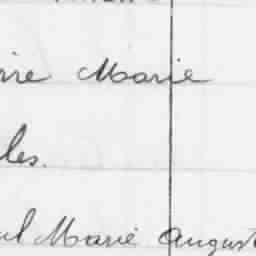 Marie
les.
ul Marie August